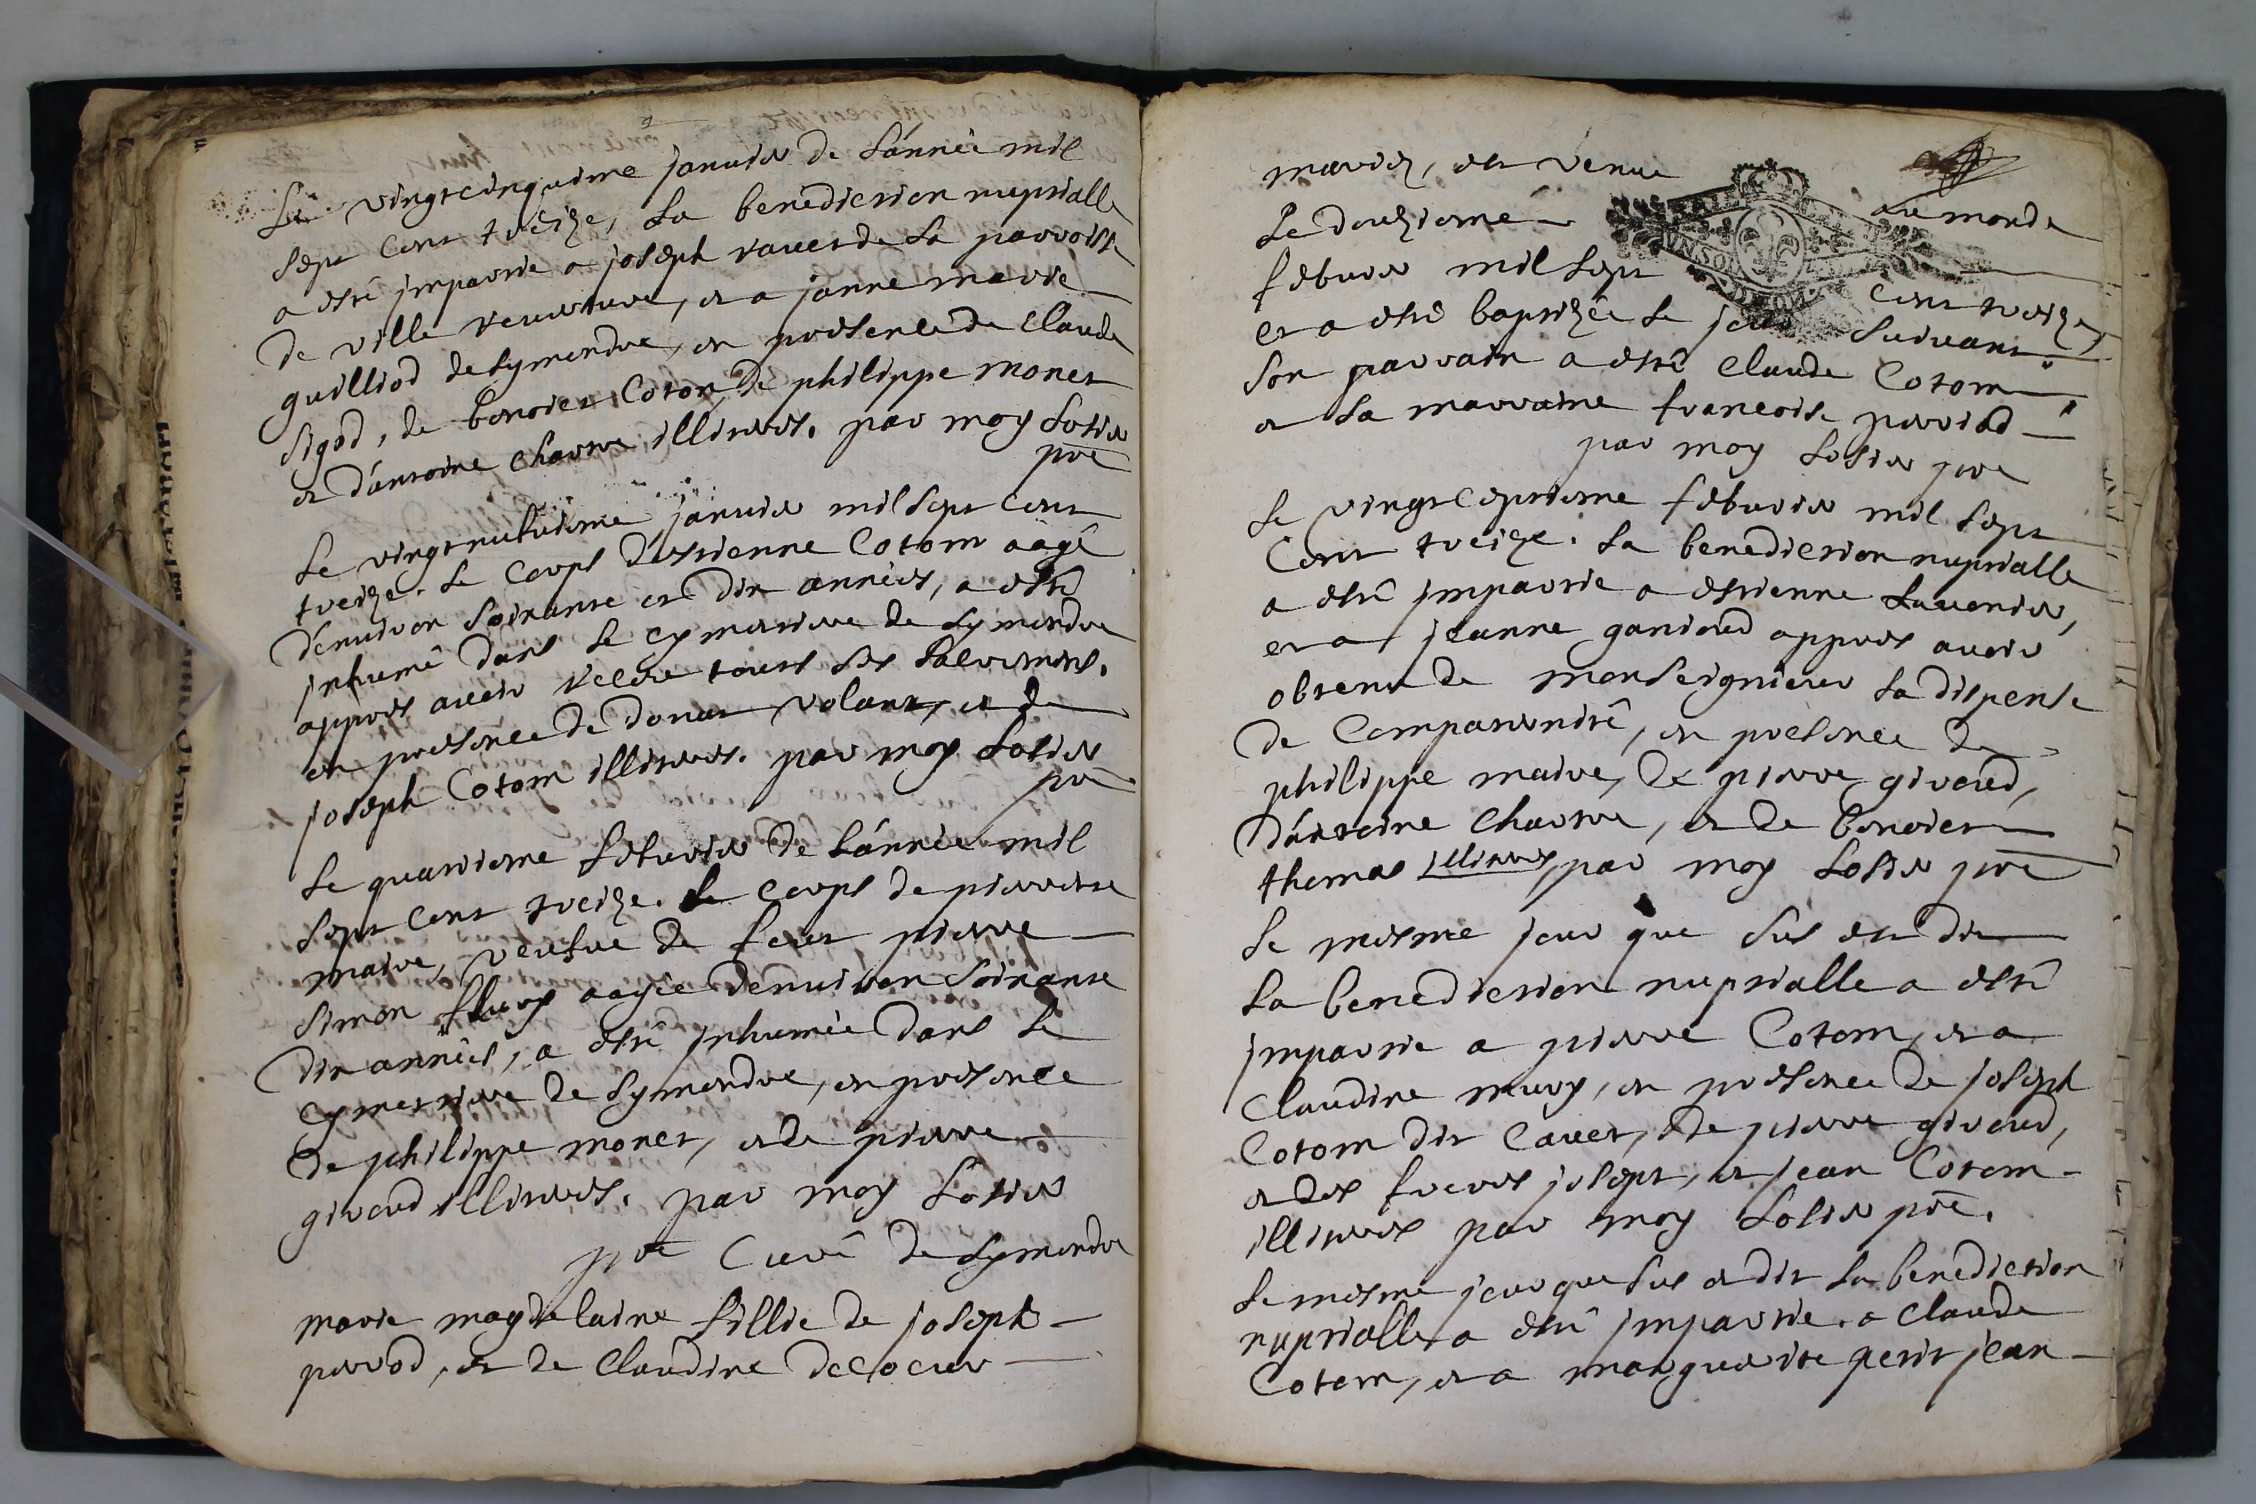 Le vingtcinquiême januier de l'année mil
sept cent treize, la benediction nuptialle
a estê jmpartie a joseph rauet de la parroisse
de ville reuersure, et a janne marie
guilliod de symandre, en presence de claude
sigod, de benoiet Cotom, de philippe monet
et d'antoine charue illiteres. par moy Sotier
ptre
Le vingtneufuieme januier mil sept cent
treize. le corps d'estienne Cotom aagê
d'enuiron soixante et dix années, a estê
jnhumê dans le cymetiere de symandre
appres auoir receu tous ses sacremens.
en presence de donat volant, et de
joseph Cotom illiteres. par moy Sotier
ptre
Le quatrieme feburier de l'année mil
sept cent treize. le corps de pierrette
maire, veufue de feut pierre
simon flury aagée denuiron soixante
dix années, a estê jnhumée dans le
cymetiere de symandre, en presence
de philippe monet, et de pierre
giroud illiteres. par moy Sotier
ptre Curê de symandre
marie magdelaine fillie de joseph
perrod, et de claudine decocur
mariez, est venue
au monde
le douziemê
febuier mil sept
cent treize,
et a estê baptizêe le jour suivant
son parrain a estê claude Cotom
et la marraine francoise perriod
par moy Sotier ptre
Le vingtceptieme febuier mil sept
cent treize. la benediction nuptialle
a estê jmpartie a estienne Lauenier,
et a jeanne ganioud appres auoir
obtenu de monseignieur la dispense
de comparentê, en presence de
philippe maire, de pierre giroud,
d'antoine charue, et de benoiet
thomas illiteres, par moy Sotier ptre
Le mesme jour que sus est dit
la benediction nuptialle a estê
jmpartie a pierre Cotom, et a
claudine mury, en presence de joseph
Cotom dit cauet, de pierre giroud,
et des freres josept, et jean Cotom
illiteres par moy Sotier ptre.
Le mesme jour que sus et dit la benediction
nuptialle a estê jmpartie a claude
Cotom, et a marguerite petit jean